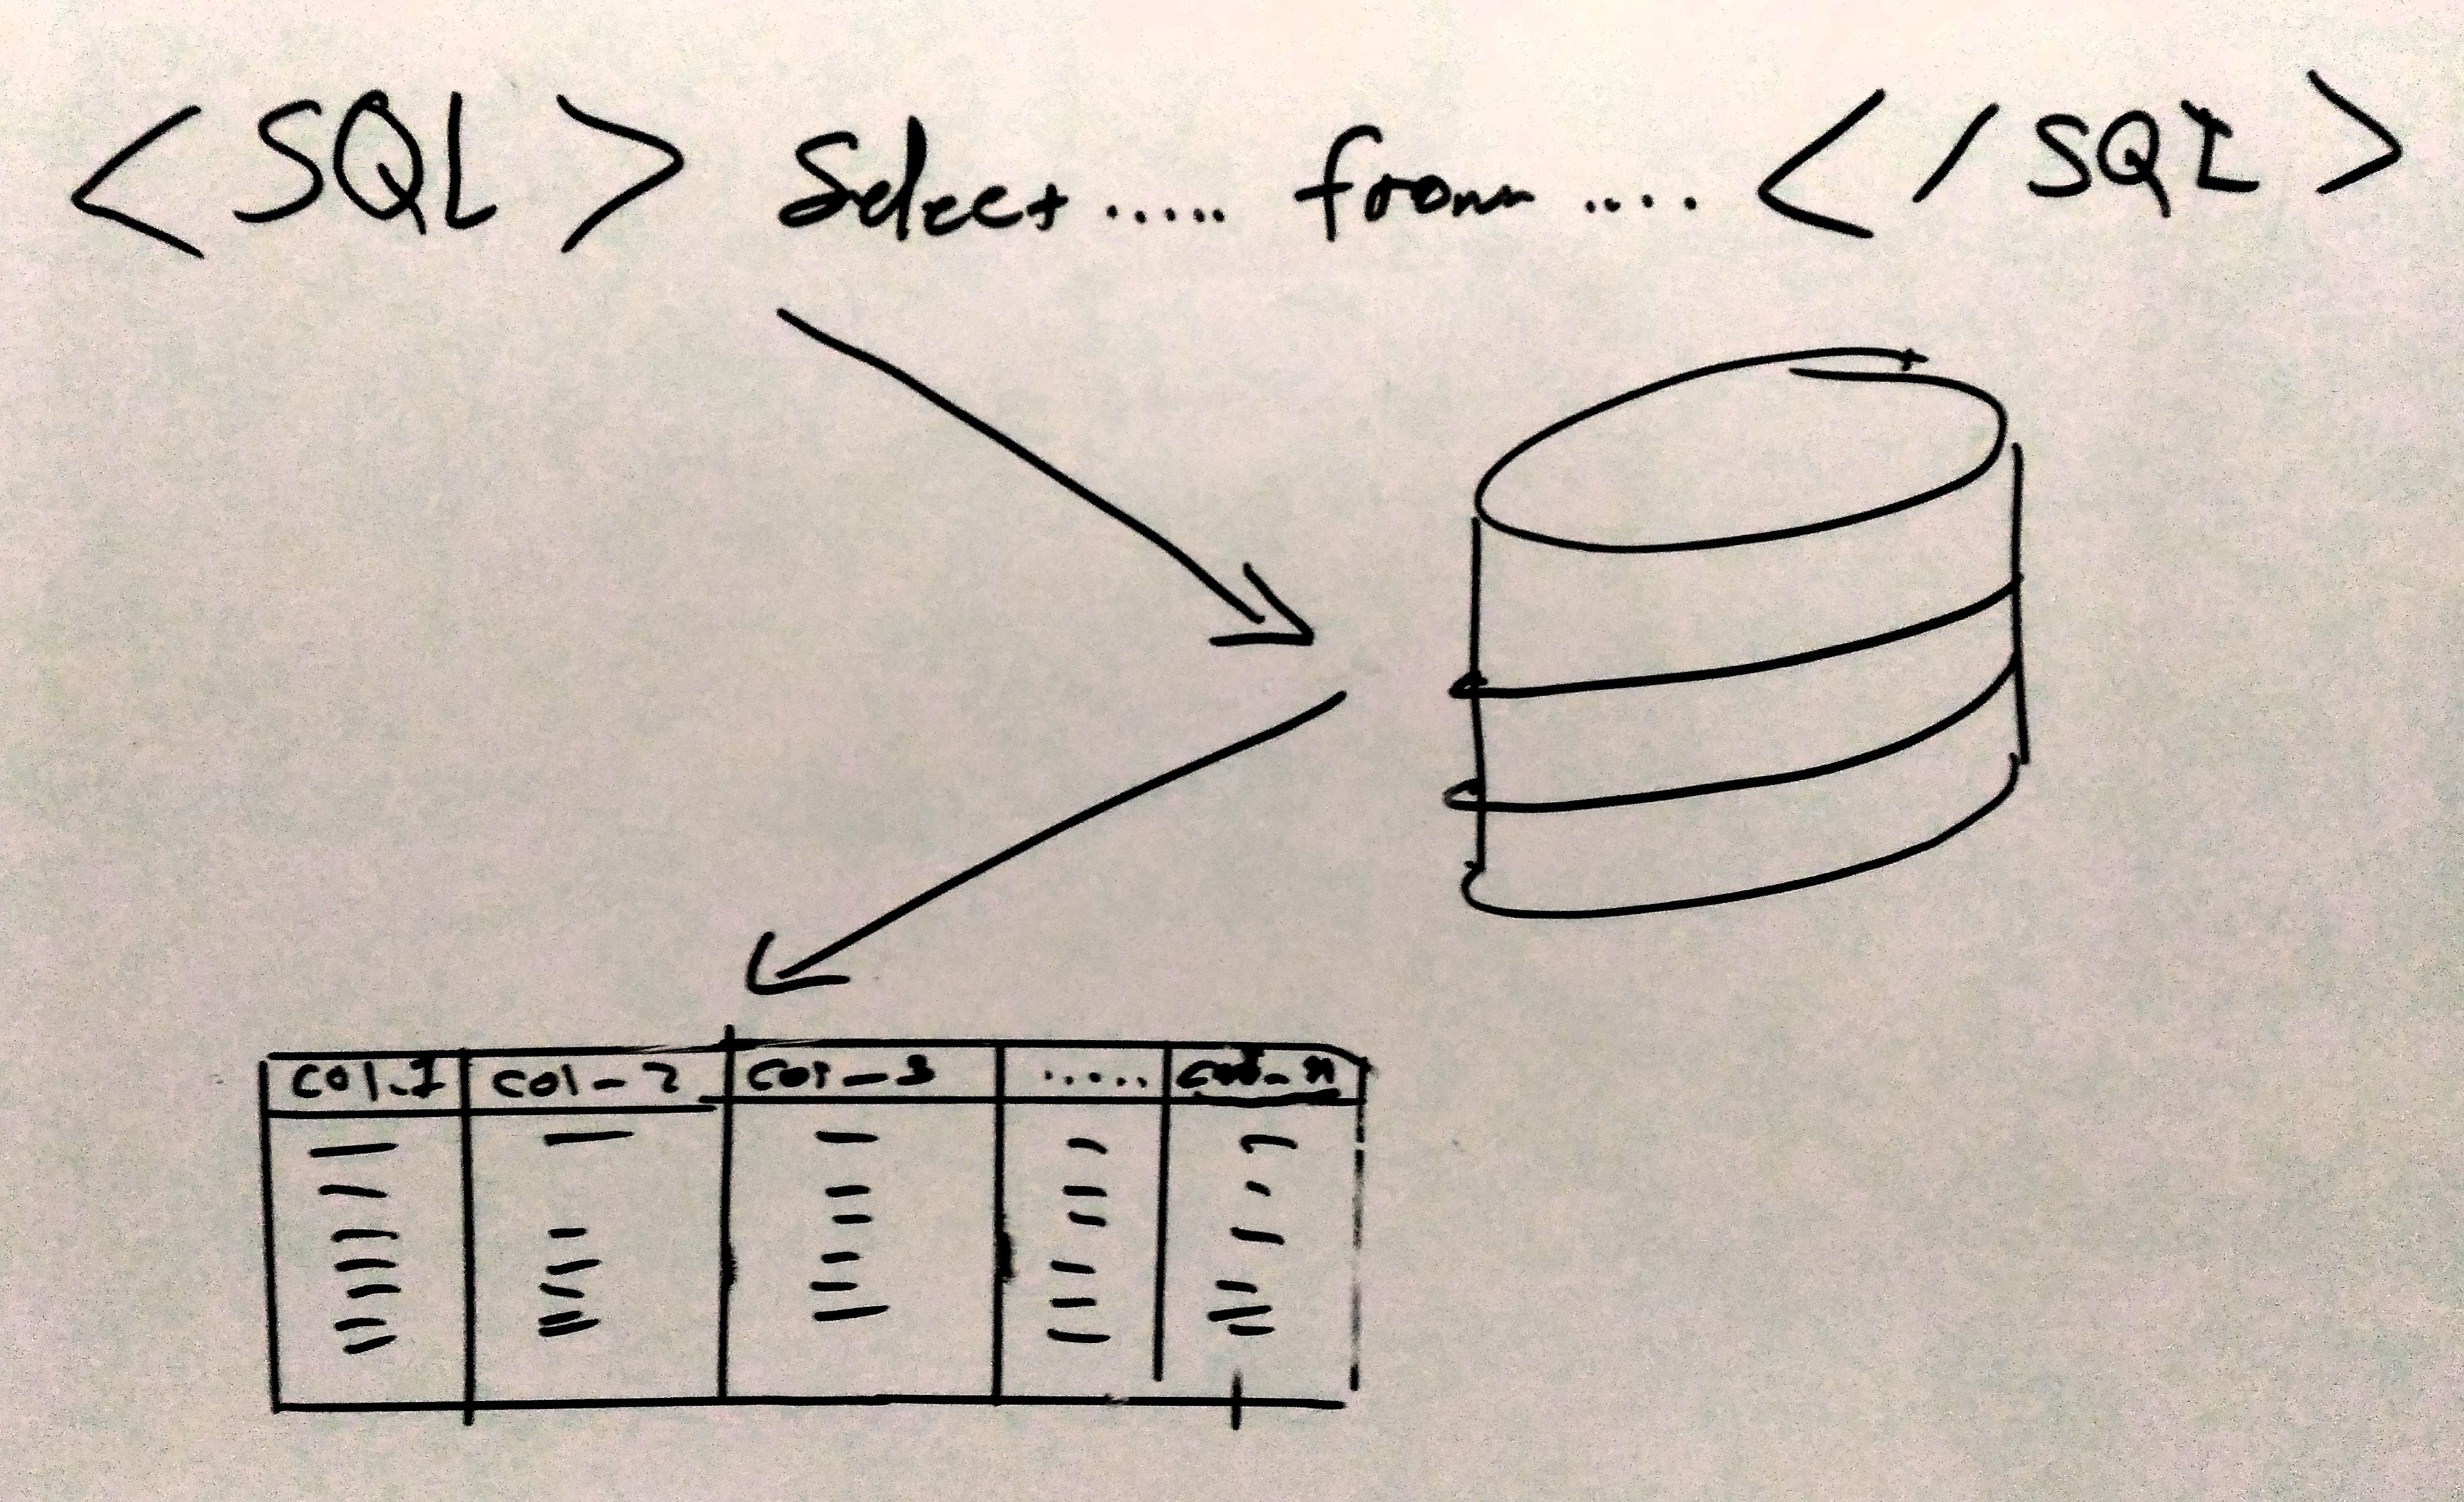 <SQL> Select ..... from .... </SQL>
col_1 col_2 col_3 ..... col_n